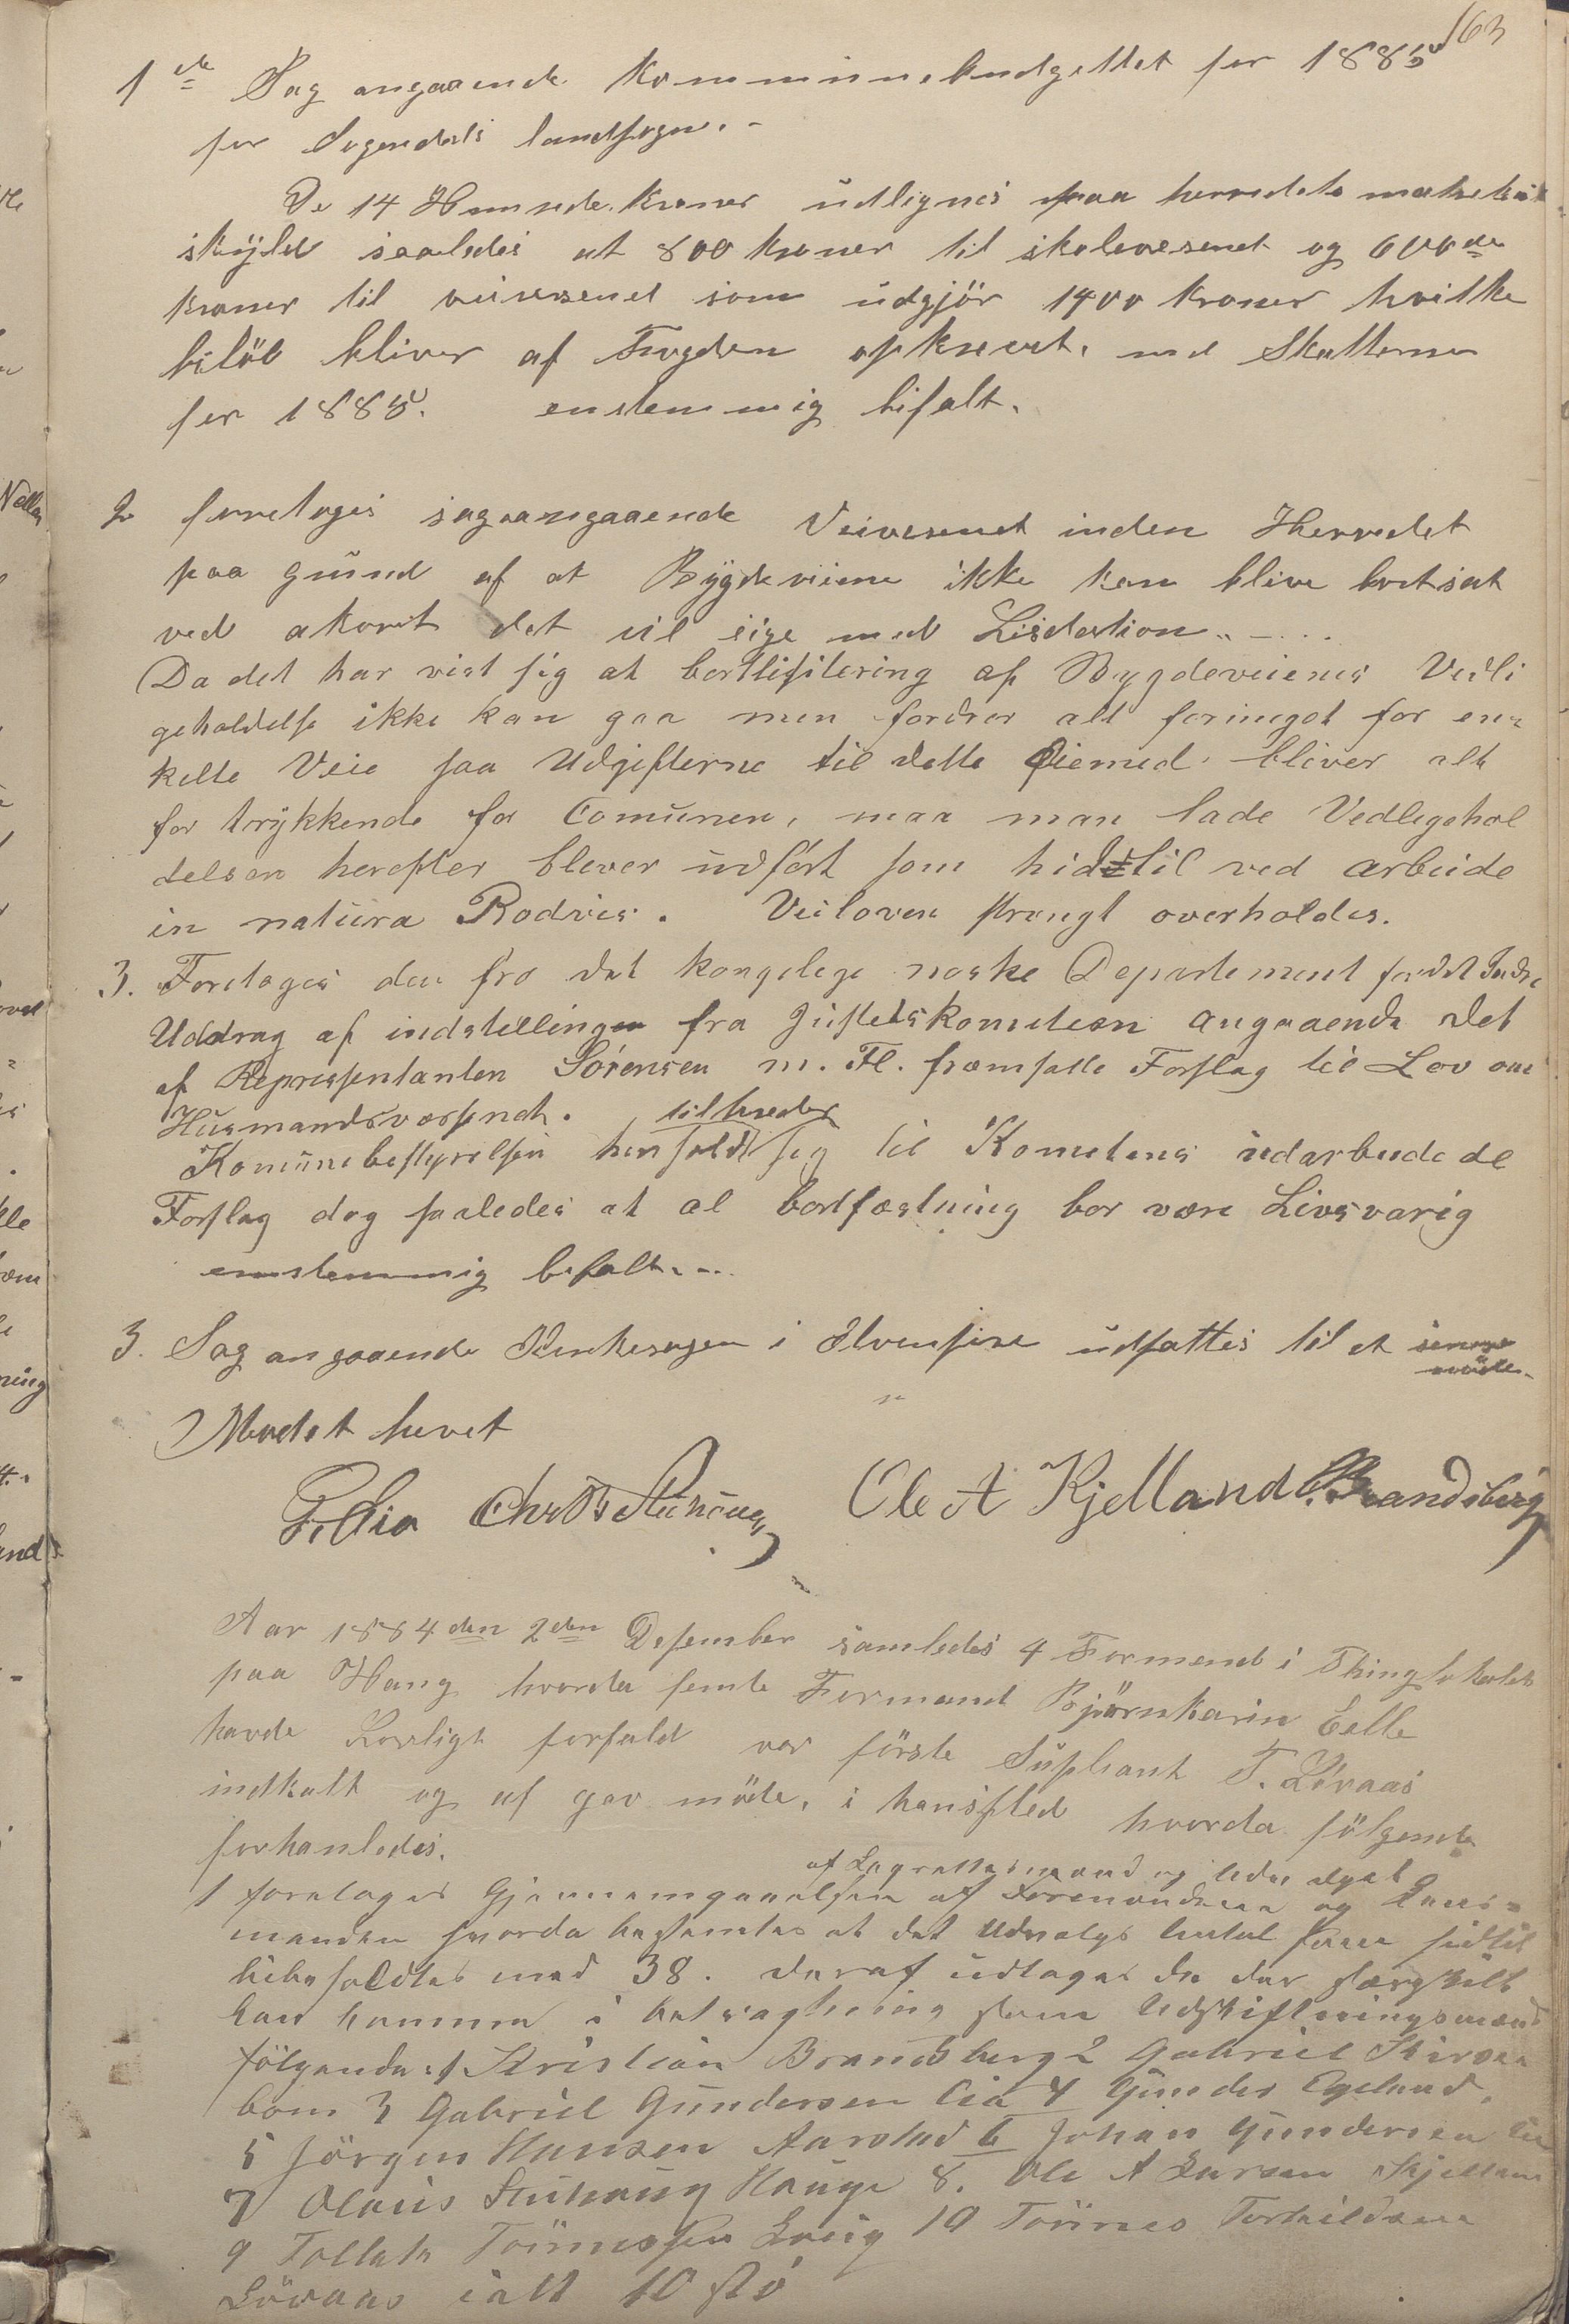 163
1de Sag angaaende Kommunebudgettet for 1885
for Sogendals landsogn. -
De 14 Hunrede Kroner udlignes paa herredets matrikul
skyld saaledes at 800 kroner til skolevesenet og 600de
kroner til veivesenet som udgjör 1400 Kroner hvilke
belöb bliver af Fogden opkrevet. med Skatterne
for 1885. enstemmig bifalt.
2 forretoges sagaangaaende Veivesenet inden Herredet
paa grund af at Bygdeveiene ikke kan blive bortsat
ved akort det vil sige med Lisitation.. - ...
Da det har vist sig at bortlisitering af Bygdeveienes Vedli
geholdelse ikke kan gaa men fordrer alt formeget for en=
kelte Veie saa Udgifterne til dette Øiemed bliver alt
for trykkende for Comunen, maa man lade Vedligehol
delsen herefter blever udfört som hidtil ved arbeide
in natura Rodvis. Veiloven strengt overholdes.
3. Foretoges den fra det kongelige noske Departement for det Indre
Uddrag af indstillingen fra Justitskomiteen angaaende det
af Representanten Sörensen m. Fl. fremsatte Forslag til Lov om
Husmandsvæsenet.
tiltreder
Komunebestyrelsen henholdt sig til Komitens udarbeidede
Forslag dog saaledes at al bortfæstning bor være Livsvarig
enstemmig befalt. - ..
3. Sag angaaende Kirkesagen i Aluensjre udsattes til et senere
möde.
Mödet hevet
F. Lia Chr Stuhaug Ole A Kjelland C. Brandsberg
Aar 1884 den 2den Desember samledes 4 Formend i Thinglokalet
paa Haug hvorda femte Formand Björnkarin Eelle
havde Lovligt forfald var förste Supleant T. Lövaas
indkalt og af gav möde, i hans sted hvorda fölgende
forhanledes.
af Lagrettesmænd og lede valget
1 foretoges Gjennemgaaelsen af Formændene og Lens=
manden hvorda bestemtes at det Udvalgs Antal som hidtil
bibeholdtes med 38. deraf udtoges de der særskilt
kan komme i betragtning som Udskiftningsmænd
fölgende: 1 Kristian Brandsberg 2 Gabriel Skirsæe
bom 3 Gabriel Gundersen Lia 4 Gunder Egeland,
5 Jörgen Hansen Aarstad 6 Johan Gundersen Lia
7 Olaus Stuhaug Hauge 8. Ole A Larsen Kjelland
9 Tollak Tönnessen Eeeig 10 Tönnes Torkildsen
Lövaas ialt 10 stö